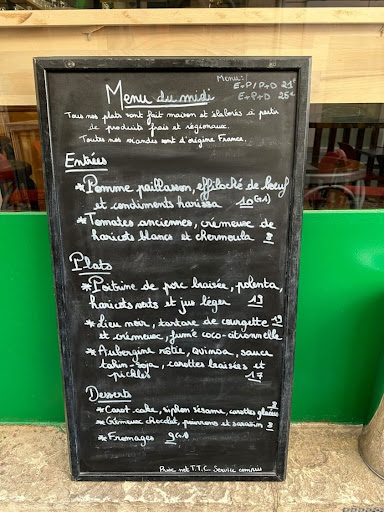 Menu du midi
Menu:
E+P/P+D 21
E+P+D 25€
Tous nos plats sont fait maison et élaborés à partir
de produits frais et régionaux.
Toutes nos viandes sont d'origine France.
Entrées
*Pomme paillasson, effiloché de bœuf
et condiments harissa 10(G1)
*Tomates anciennes, crémeuse de
haricots blancs et chermoula 8
Plats
*Poitrine de porc braisée, polenta,
haricots verts et jus léger 19
*Lieu noir, tartare de courgette 19
et crémeux, fumé coco-citronnelle
*Aubergine rôtie, quinoa, sauce
tahin-soja, carottes braisées et
pickles 17
Desserts
*Carot cake, siphon sésame, carottes glacées 8
*Crémeux chocolat, poivrons et sarrasin 8
*Fromages 9(G1)
Prix net T.T.C. Service compris